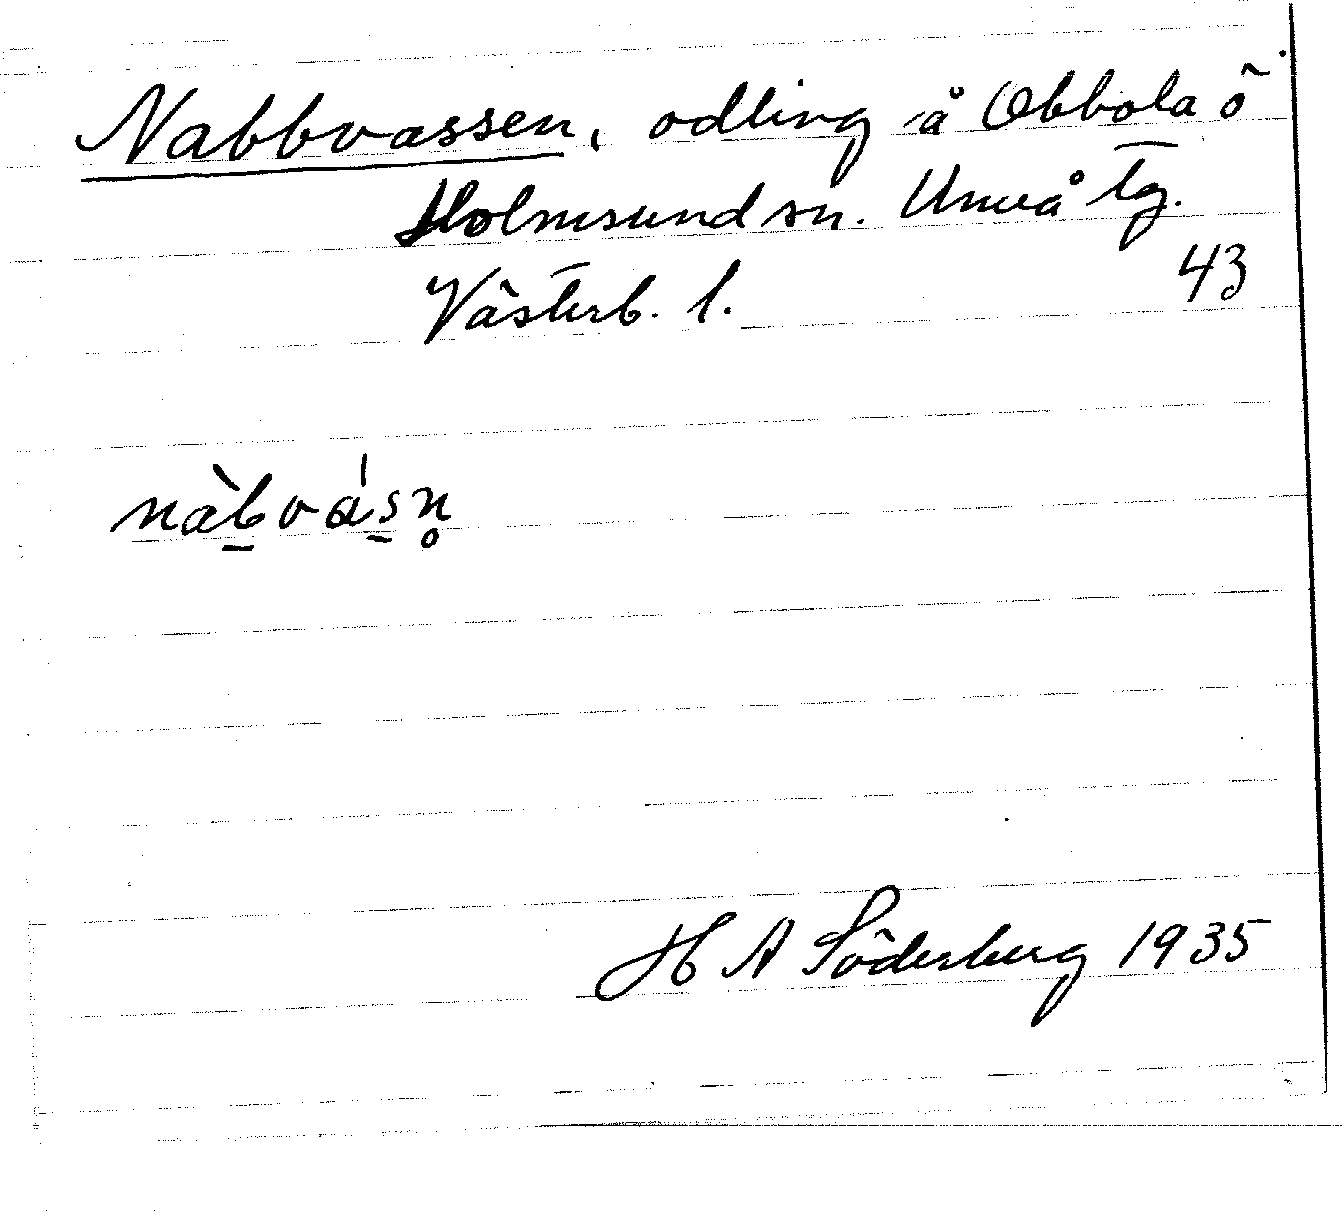 Nabbvassen, odling å Obbola ö
Holmsund sn. Umeå tg.
Västerb. l. 43
nàb̠vás̠n̥
H A Söderberg 1935